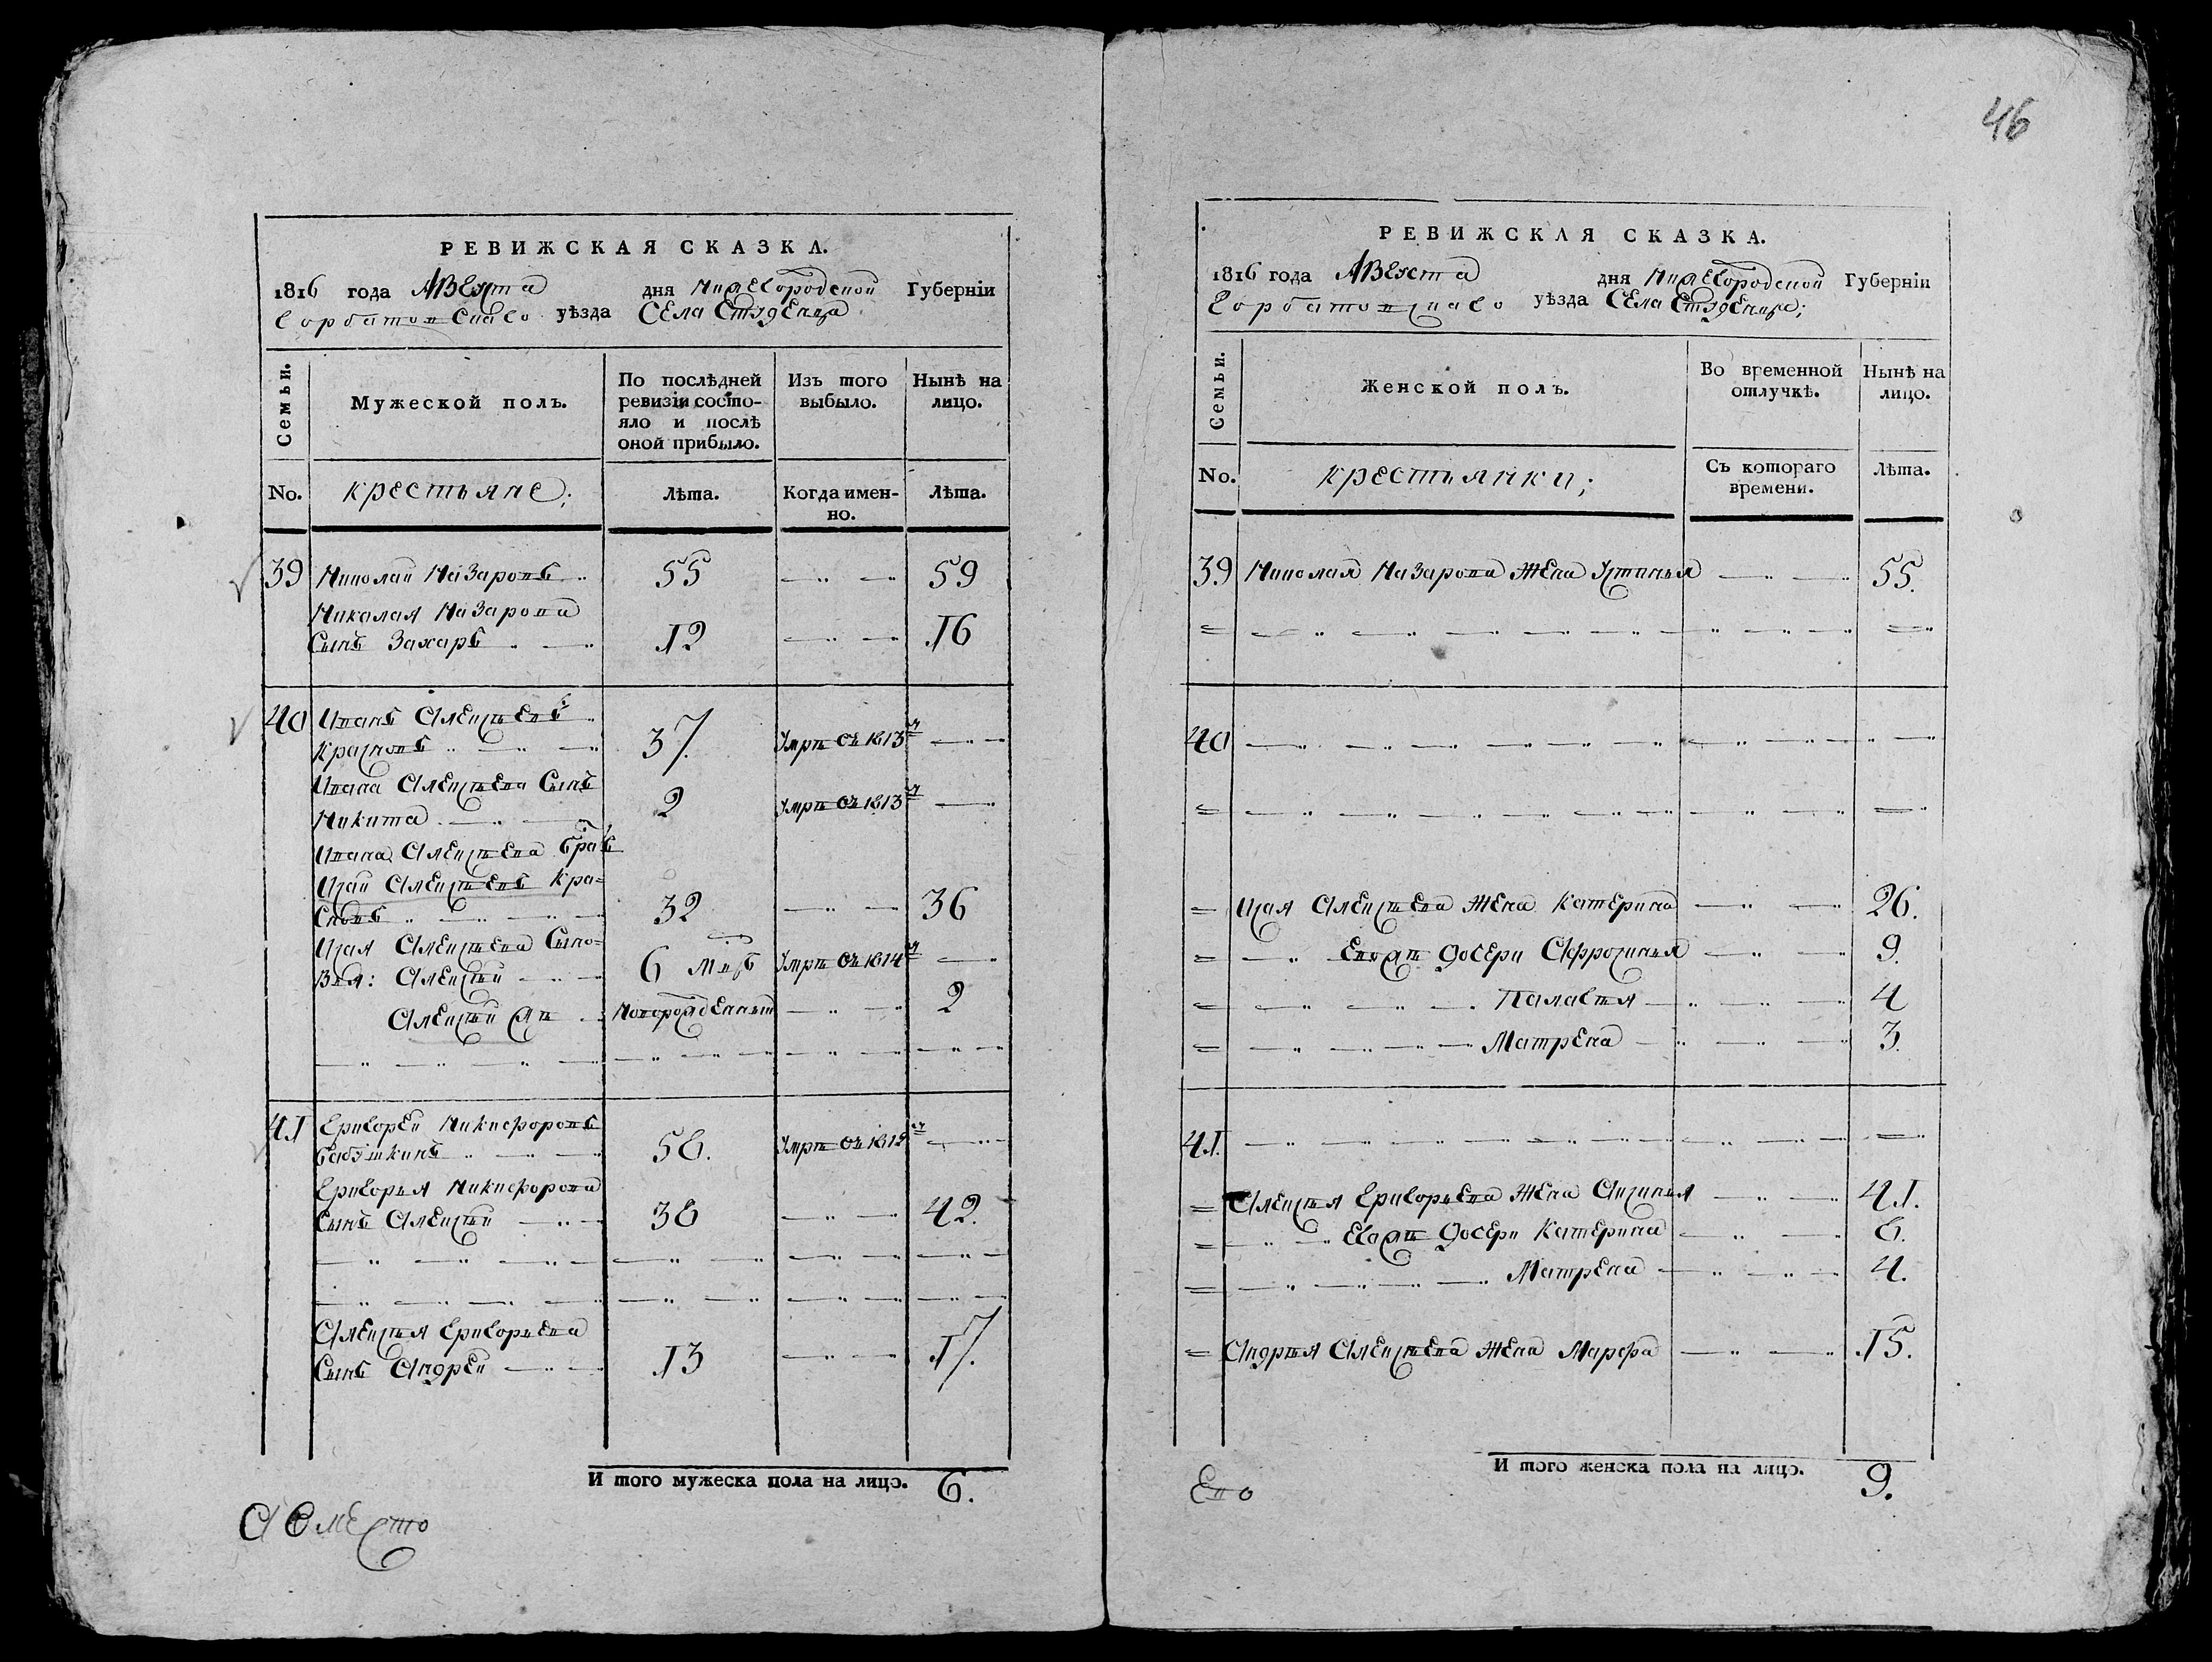 46
РЕВИЖСКАЯ СКАЗКА.
1816 года Августа дня Нижегородской Губернїи
Горбатовскаго уѣзда Села Студенца
Семьи.
Мужеской полъ.
По послѣдней ревизїи состо-
яло и послѣ
оной прибыло.
Изъ того
выбыло.
Нынѣ на
лицо.
No.
крестьяне;
Лѣта.
Когда имен-
но.
Лѣта.
39 Николай Назаровъ 55 59
Николая Назарова
Сынъ Захаръ 12 16
40 Иванъ Алексѣевъ
Красновъ 37. Умре въ 1813 м
Ивана Алексѣева Сынъ
Никита 2 Умре въ 1813 м
Ивана Алексѣева братъ
Исай Алексѣевъ Кра=
сновъ 32 36
Исая Алексѣева Сыно=
вья: Алексѣй 6 мцъ Умре въ 1814 м
Алексѣй же Новорожденный 2
41 Григорей Никифоровъ
бабушкинъ 58. Умре въ 1812 м
Григорья Никифорова
Сынъ Алексѣй 38 42.
Алексѣя Григорьева
Сынъ Андрей 13 17.
И того мужеска пола на лицо. 6.
А вместо
РЕВИЖСКАЯ СКАЗКА.
1816 года Августа дня Нижегородской Губернїи
Горбатовскаго уѣзда Села Студенца;
Семьи.
Женской полъ.
Во временной
отлучкѣ.
Нынѣ на
лицо.
No.
крестьянки;
Съ котораго
времени.
Лѣта.
39 Николая Назарова жена Устинья 55.
40
Исая Алексѣева жена Катерина 26.
Евож дочери Афросинья 9.
Палагея 4
Матрена 3.
41.
Алексѣя Григорьева жена Аксинья 41.
Егож дочери Катерина 8.
Матрена 4.
Андрея Алексѣева жена Марфа 15.
И того женска пола на лицо. 9.
Ево